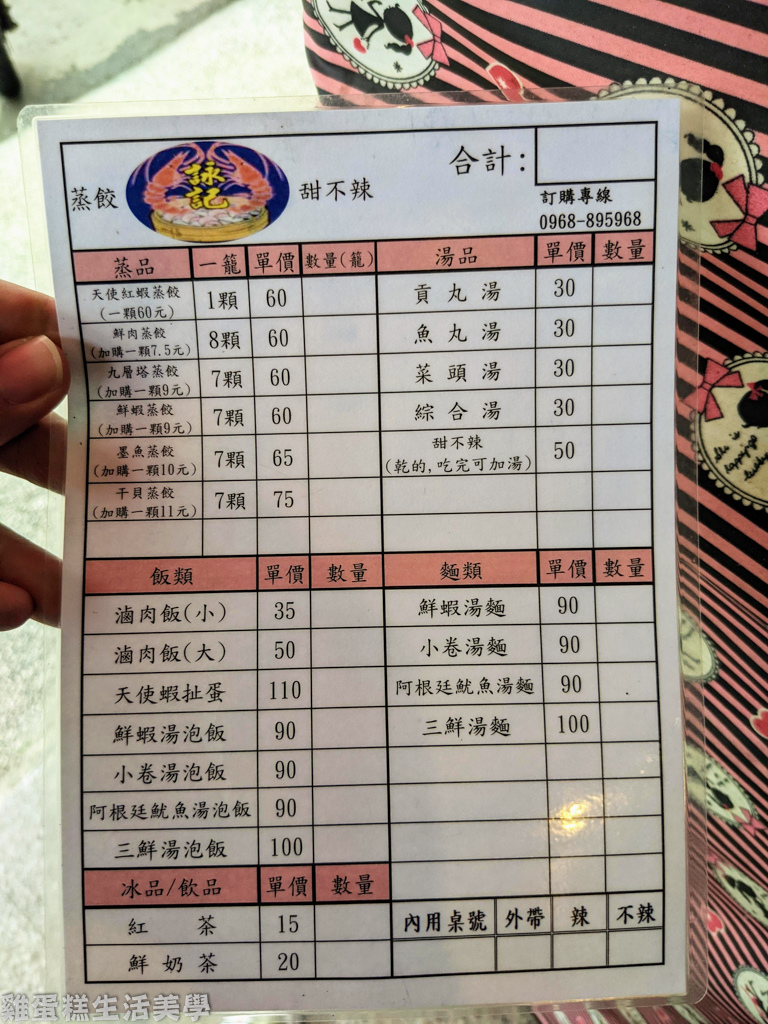 蒸餃 詠記 甜不辣 合計:
訂購專線
0968-895968
蒸品 一籠 單價 數量(籠)
天使紅蝦蒸餃 1顆 60
(一顆60元)
鮮肉蒸餃 8顆 60
(加購一顆7.5元)
九層塔蒸餃 7顆 60
(加購一顆9元)
鮮蝦蒸餃 7顆 60
(加購一顆9元)
墨魚蒸餃 7顆 65
(加購一顆10元)
干貝蒸餃 7顆 75
(加購一顆11元)
湯品 單價 數量
貢丸湯 30
魚丸湯 30
菜頭湯 30
綜合湯 30
甜不辣 50
(乾的,吃完可加湯)
飯類 單價 數量
滷肉飯(小) 35
滷肉飯(大) 50
天使蝦扯蛋 110
鮮蝦湯泡飯 90
小卷湯泡飯 90
阿根廷魷魚湯泡飯 90
三鮮湯泡飯 100
麵類 單價 數量
鮮蝦湯麵 90
小卷湯麵 90
阿根廷魷魚湯麵 90
三鮮湯麵 100
冰品/飲品 單價 數量
紅茶 15
鮮奶茶 20
內用桌號 外帶 辣 不辣
雞蛋糕生活美學